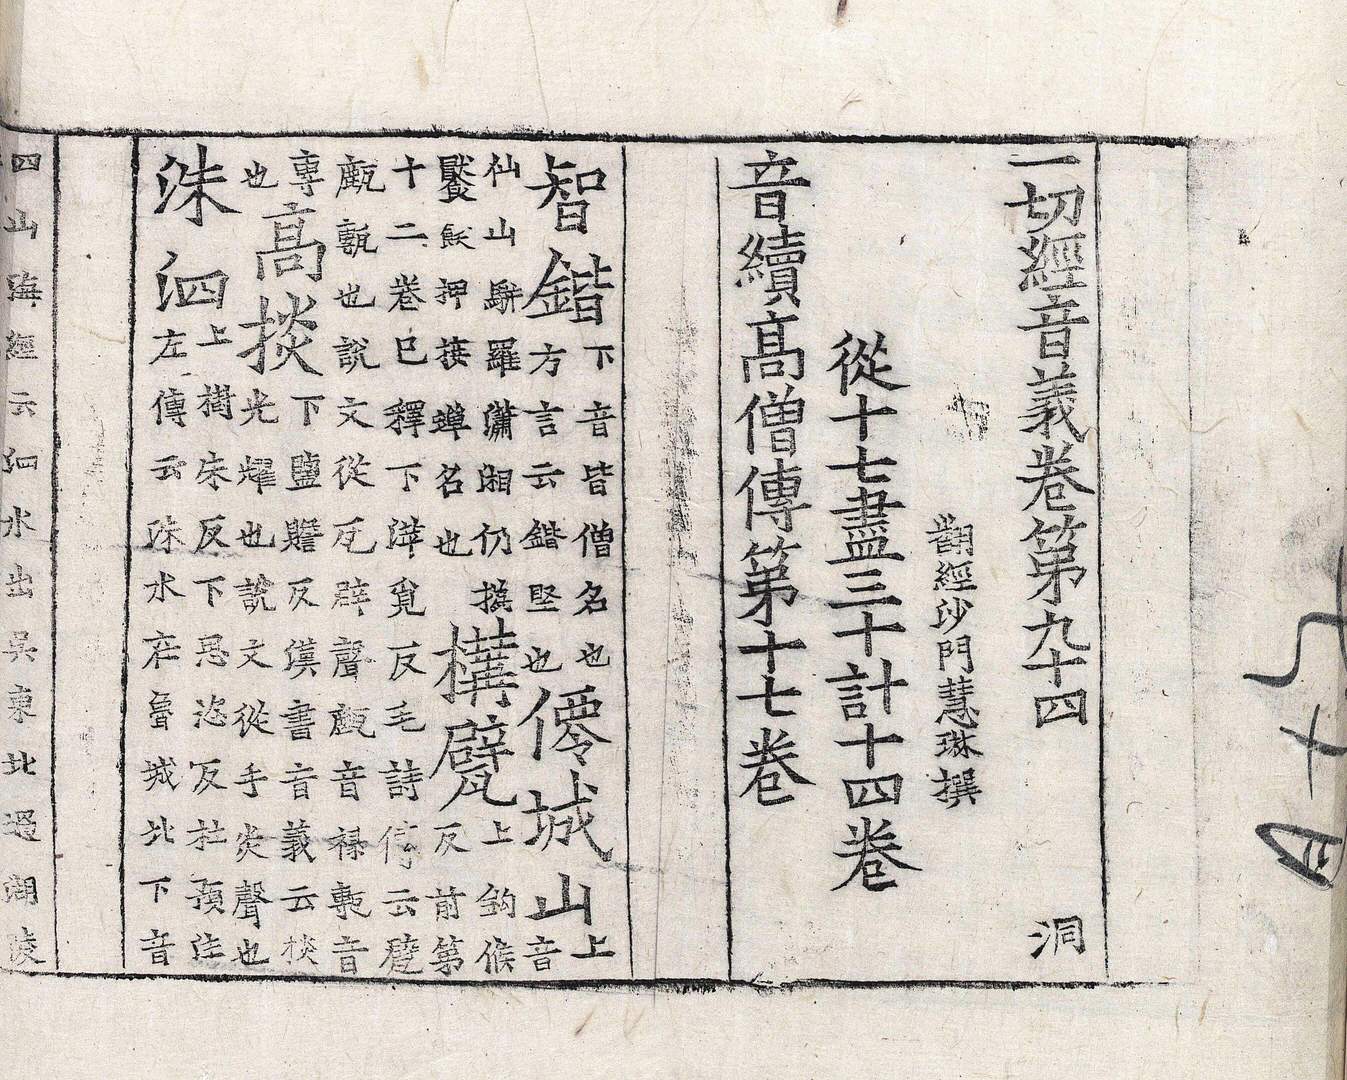 一切經音義卷第九十四 洞
翻經沙門慧琳撰
從十七盡三十計十四卷
音續高僧傳第十七卷
智鍇下音皆僧名也方言云鍇堅也僊城山上音
仙山駢羅瀟湘仍撝饜飫押蓑蟬名也構甓上鈎候反前第
十二卷已釋下滓覓反毛詩傳云甓㼾甎也說文從瓦辟聲㼾音祿甎音
專也高掞下鹽贍反漢書音義云掞光耀也說文從手炎聲也
洙泗上樹朱反下思恣反杜預注左傳云洙水在魯城北下音
四山海經云泗水出吳東北過湖陵